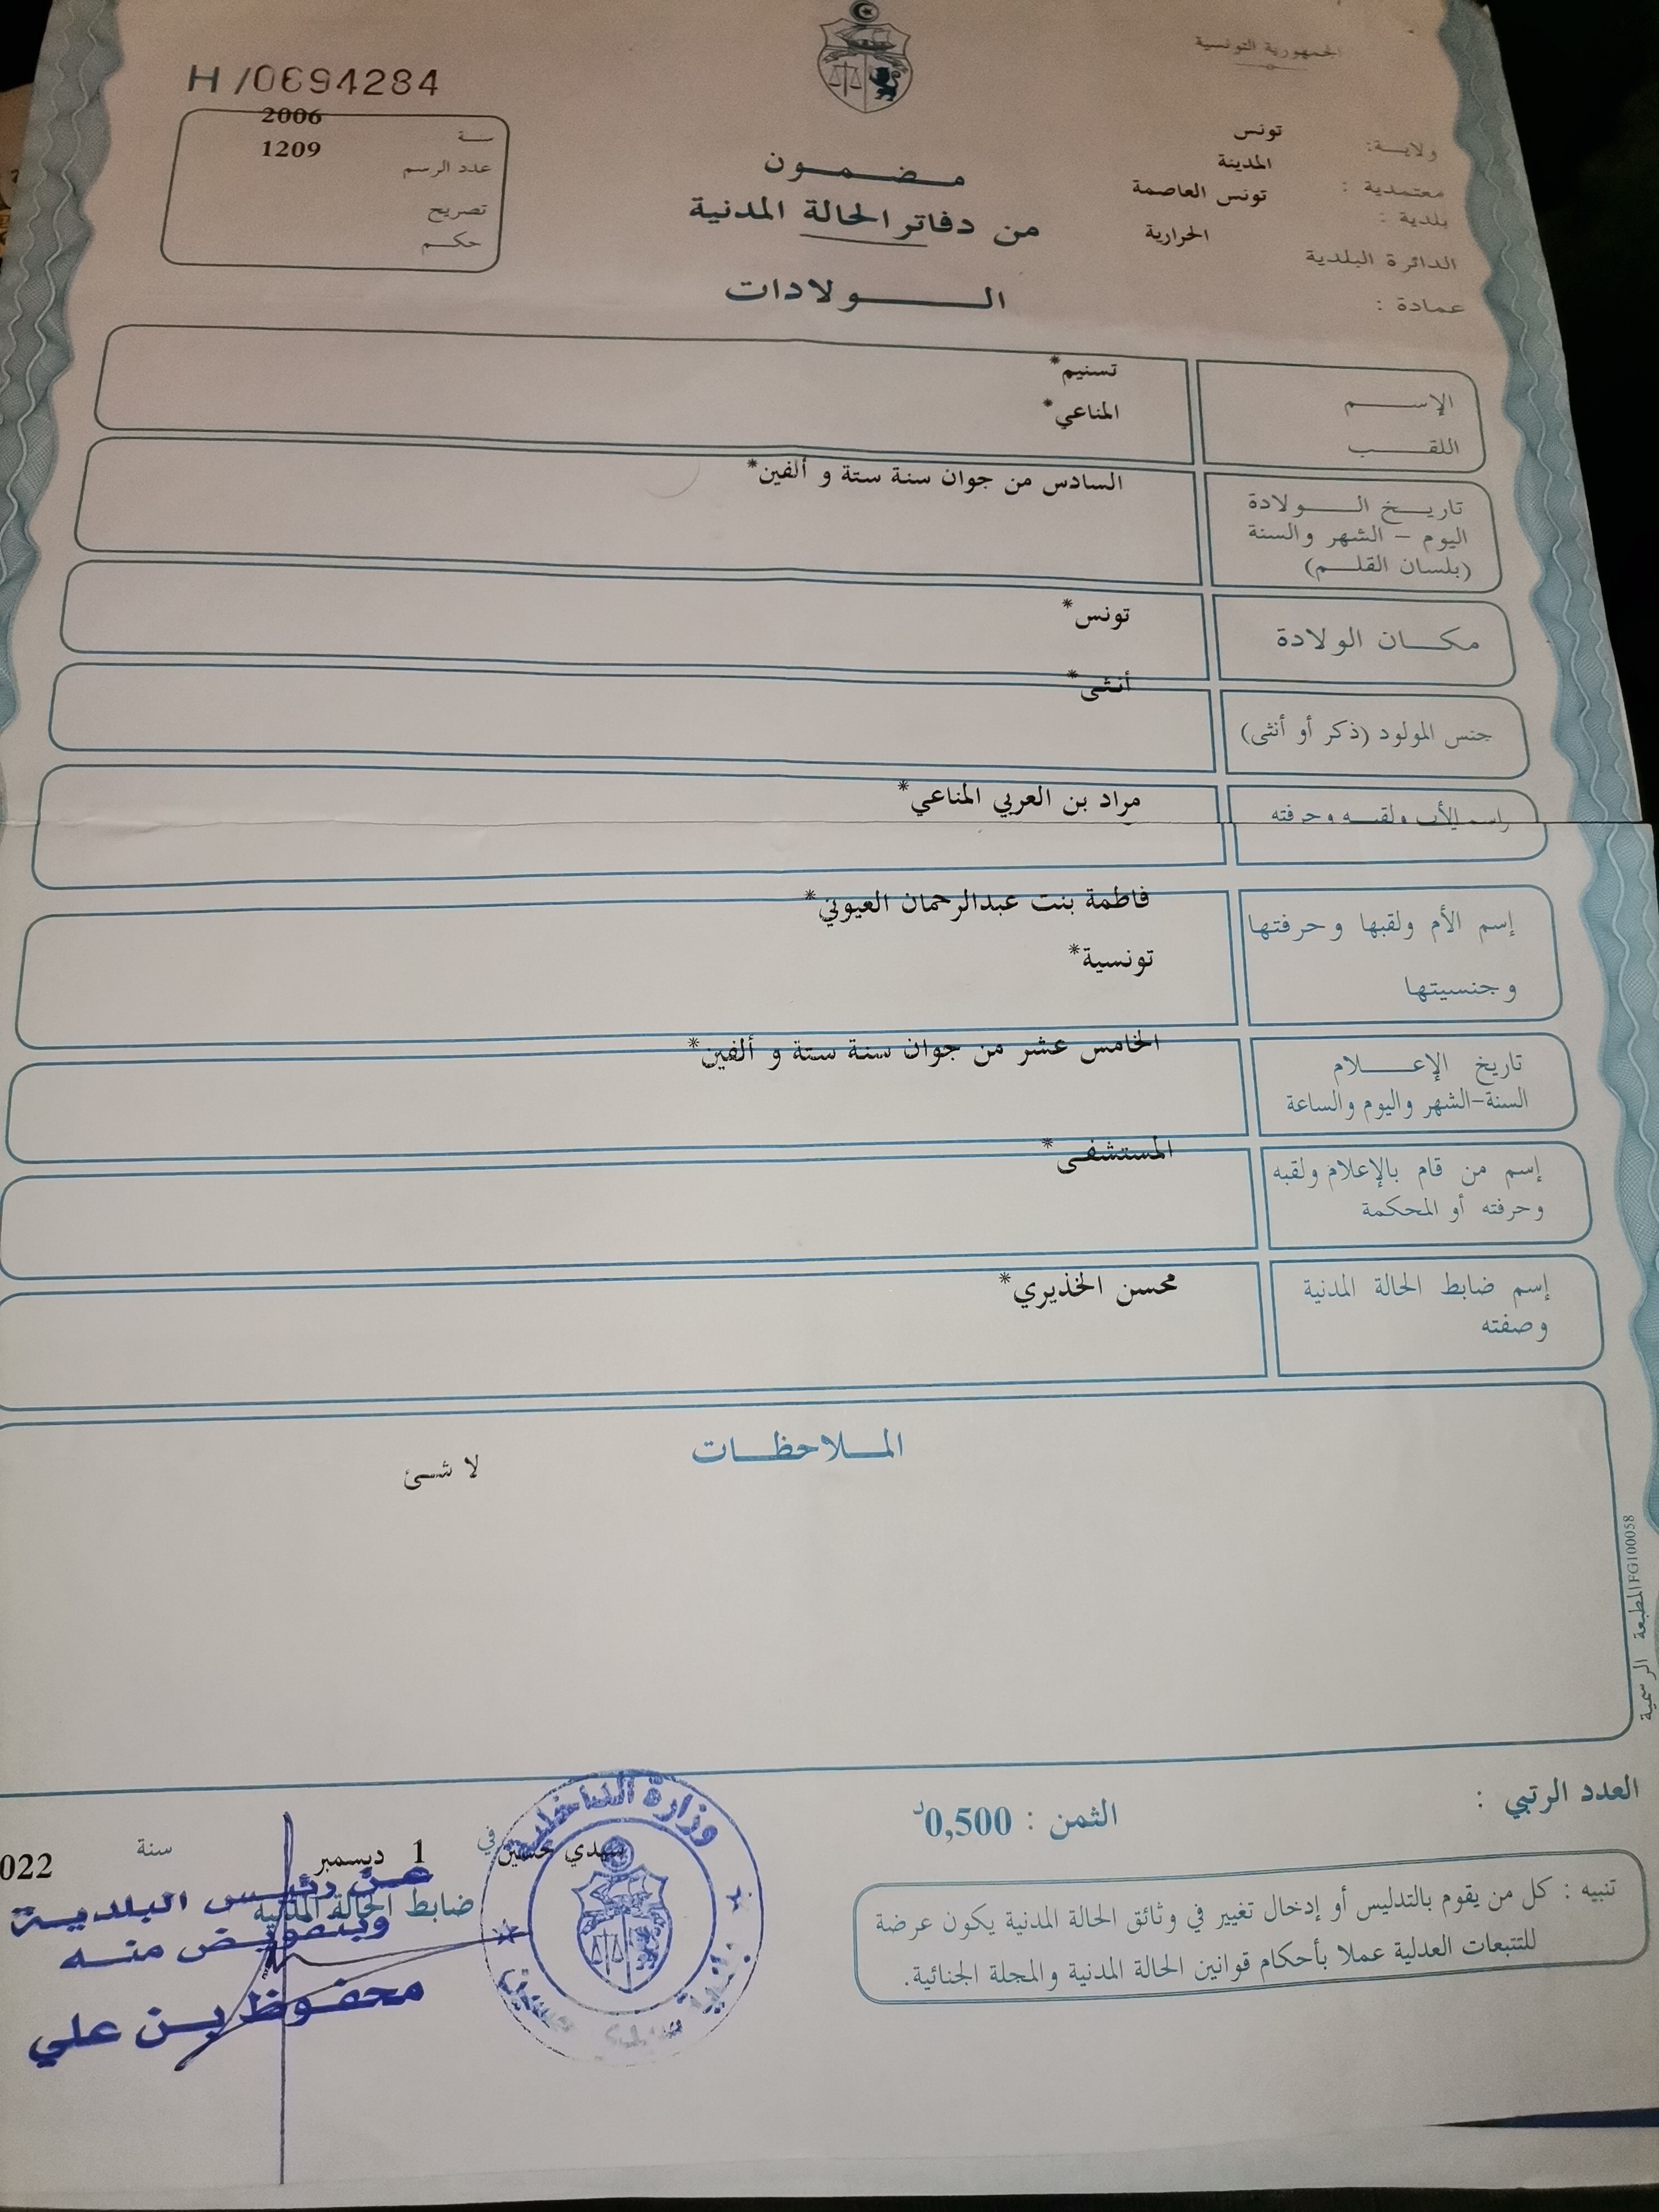 الجمهورية التونسية
H /0694284
ولاية: تونس
معتمدية : المدينة
بلدية : تونس العاصمة
الدائرة البلدية الحرارية
عمادة :
سنة 2006
عدد الرسم 1209
تصريح
حكم
مضمون
من دفاتر الحالة المدنية
الولادات
الإسم تسنيم*
اللقب المناعي*
تاريخ الولادة السادس من جوان سنة ستة و ألفين*
اليوم - الشهر والسنة
(بلسان القلم)
مكان الولادة تونس*
جنس المولود (ذكر أو أنثى) أنثى*
إسم الأب ولقبه وحرفته مراد بن العربي المناعي*
إسم الأم ولقبها وحرفتها فاطمة بنت عبدالرحمان العيوني*
وجنسيتها تونسية*
تاريخ الإعلام الخامس عشر من جوان سنة ستة و ألفين*
السنة-الشهر واليوم والساعة
إسم من قام بالإعلام ولقبه المستشفى*
وحرفته أو المحكمة
إسم ضابط الحالة المدنية محسن الخذيري*
وصفته
الملاحظات
لا شئ
المطبعة الرسمية FG100058
العدد الرتبي :
الثمن : 0,500د
تنبيه : كل من يقوم بالتدليس أو إدخال تغيير في وثائق الحالة المدنية يكون عرضة
للتتبعات العدلية عملا بأحكام قوانين الحالة المدنية والمجلة الجنائية.
سيدي حسين في 1 ديسمبر سنة 022
ضابط الحالة المدنية
عن رئيس البلدية
وبتفويض منه
محفوظ بن علي
وزارة الداخلية